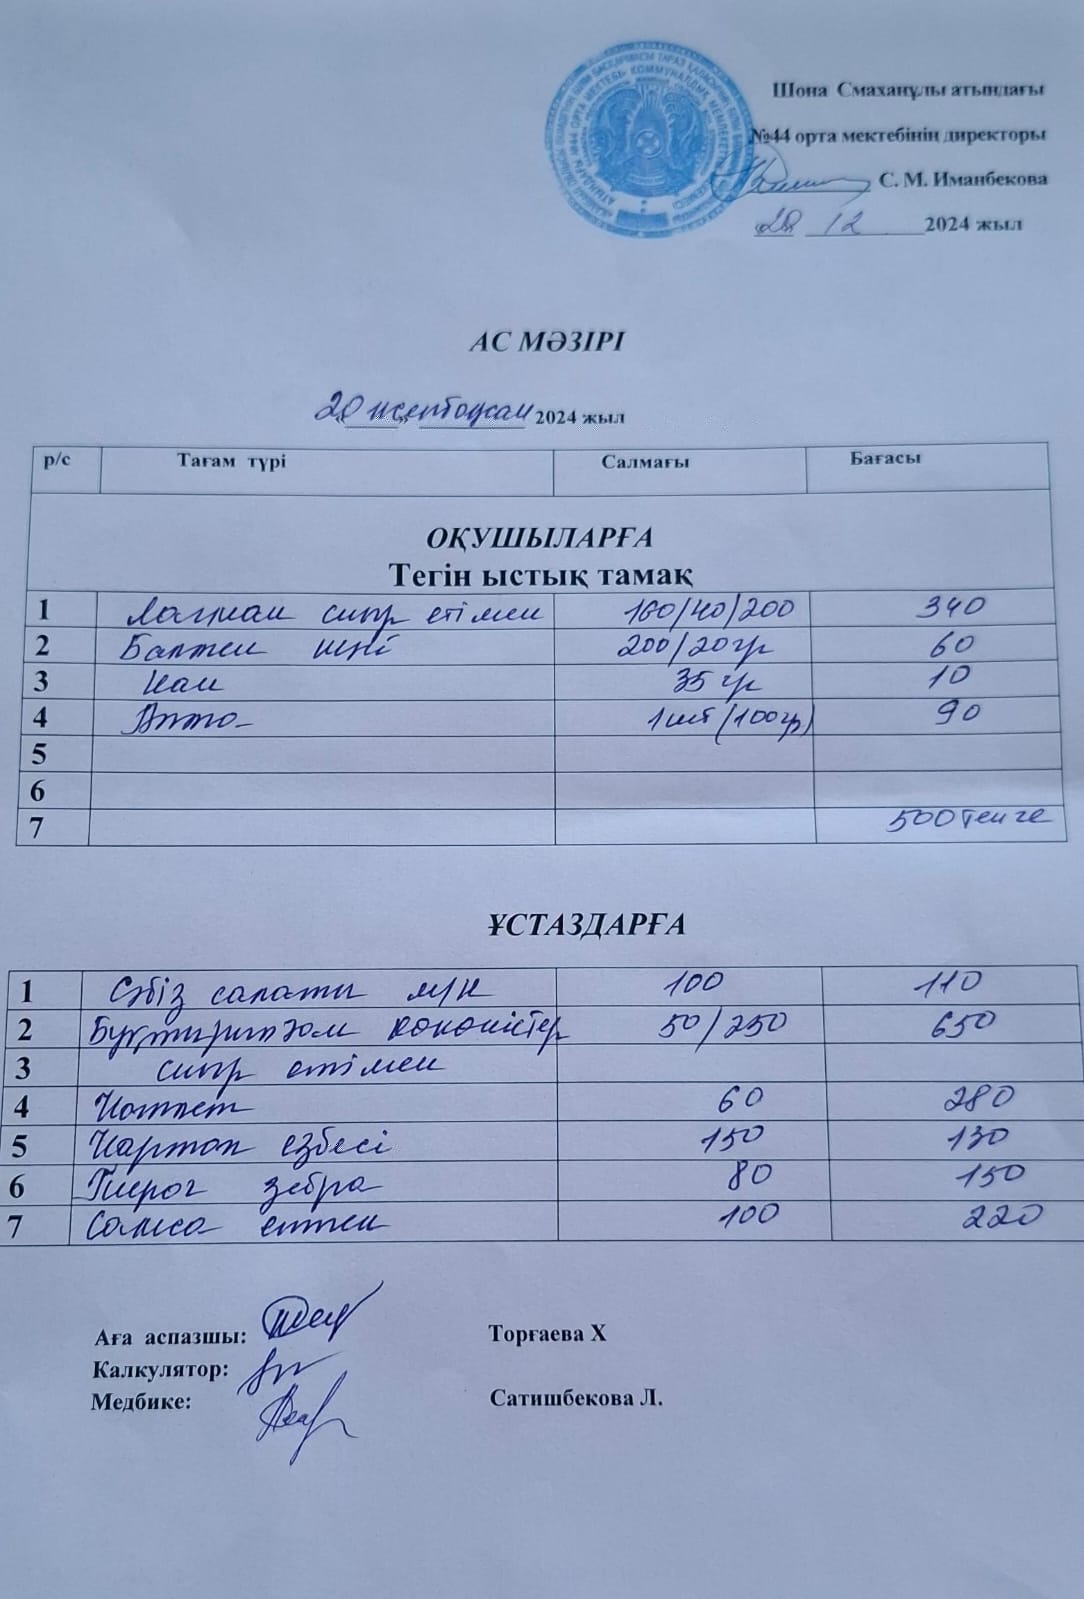 Шона Смаханұлы атындағы
№44 орта мектебінің директоры
С. М. Иманбекова
20 12 2024 жыл
АС МӘЗІРІ
20 желтоқсан 2024 жыл
р/с Тағам түрі Салмағы Бағасы
ОҚУШЫЛАРҒА
Тегін ыстық тамақ
1 Лагман сиыр етімен 160/40/200 340
2 Балмен шәй 200/20гр 60
3 Нан 35 гр 10
4 Алма 1шт (100гр) 90
5
6
7 500 теңге
ҰСТАЗДАРҒА
1 Сәбіз салаты м/н 100 110
2 Бұқтырылған көкөністер 50/250 650
3 сиыр етімен
4 Котлет 60 280
5 Картоп езбесі 150 130
6 Пирог зебра 80 150
7 Самса етпен 100 220
Аға аспазшы: Торғаева Х
Калкулятор:
Медбике: Сатишбекова Л.